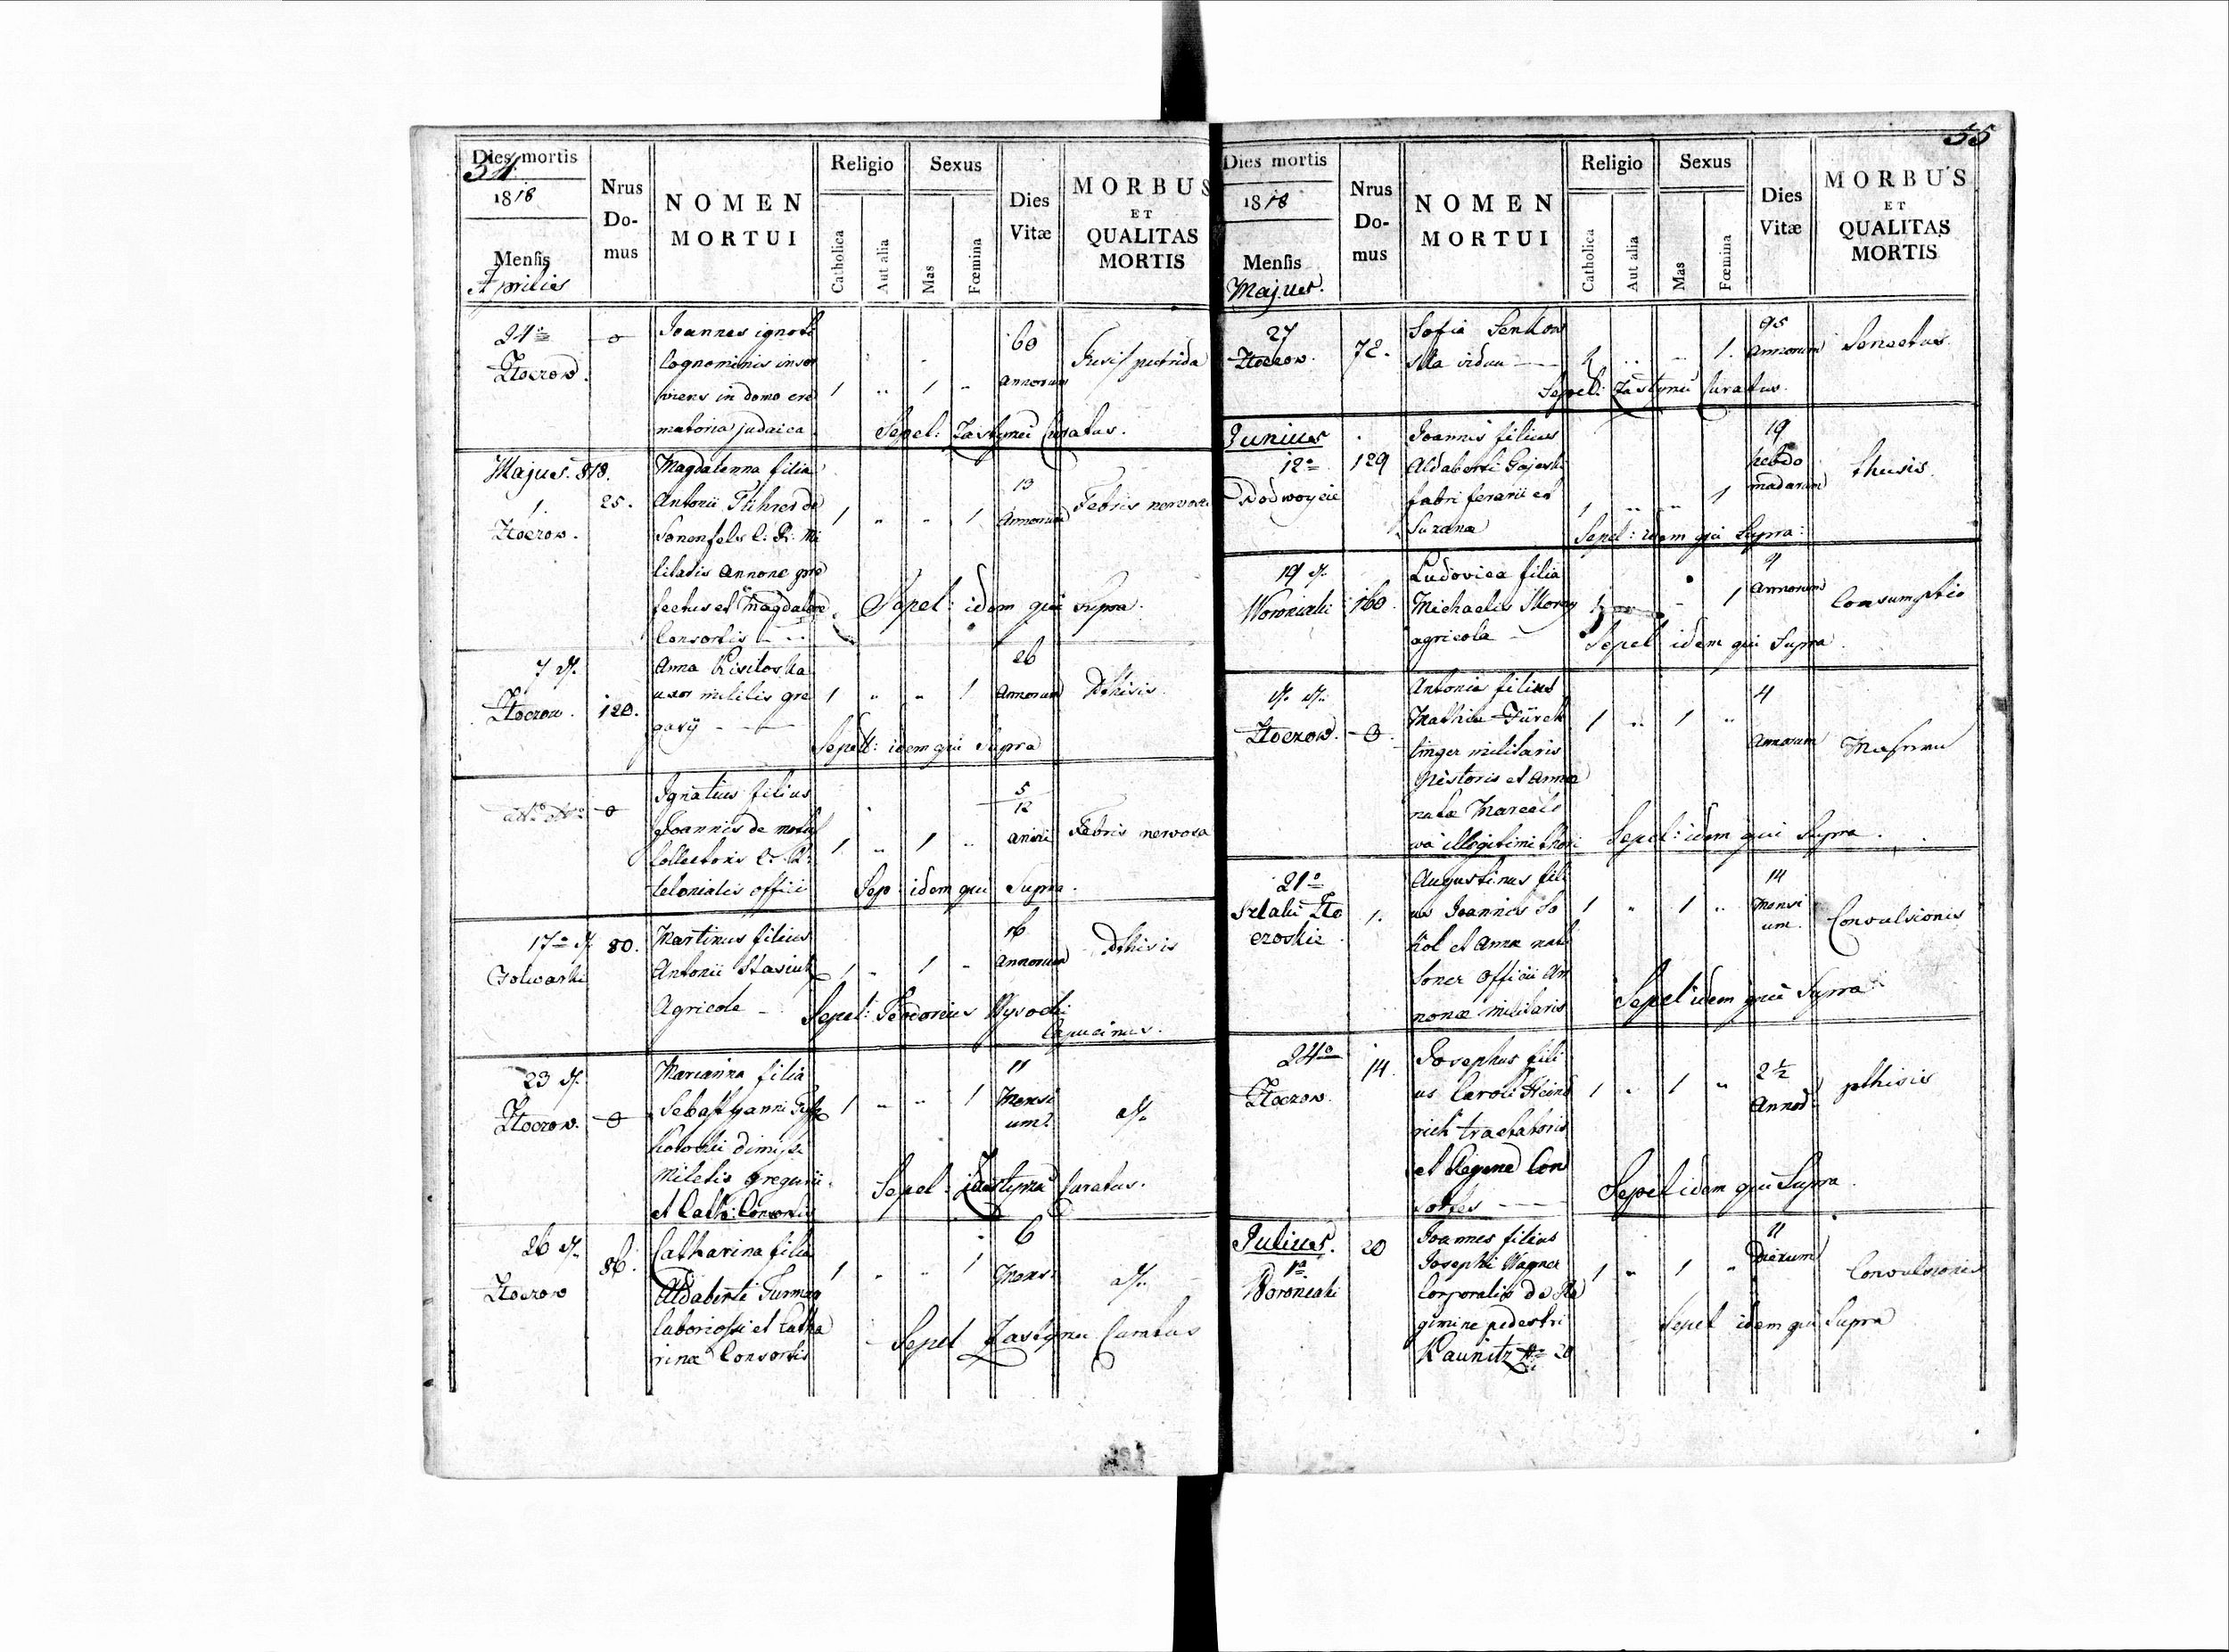 34
Dies mortis
1818
Mensis
Aprilis
Nrus
Do-
mus
NOMEN
MORTUI
Religio
Catholica
Aut alia
Sexus
Mas
Fœmina
Dies
Vitæ
MORBUS
ET
QUALITAS
MORTIS
24
Złoczow.
0
Joannes ignoti
Cognominis inser
viens in domo cre
matoria judaica
1 .. 1 ..
60
Annorum
putrida
Sepel: Zastyrnei Curatus.
Majus. 818.
1.
Złoczow.
25.
Magdalenna filia
Antonii
Sonenfels C: R: Mi
litalis Annone pre
fectus et Magdalene
Consortis
1 .. .. 1
13
Annorum
Febris nervosa
Sepel: idem qui Supra.
7
Złoczow.
120.
Anna
uxor militis gre
garii
1 .. .. 1
26
Annorum
Pthisis.
Sepell: idem qui Supra
0
Ignatius filius
Joannis de
Collectoris C. R.
telonialis officii
1 .. 1 ..
5/12
Febris nervosa
Sep: idem qui Supra.
17
Folwarki
80.
Martinus filius
Antonii Stasiuk
Agricole
1 .. 1 ..
16
Annorum
Pthisis
Sepel: Teodorus Wysocki
Capucinus.
23
Złoczow.
0
Marianna filia
Sebastyanni
dimissi
Miletis gregarii
et Cath: Consortis
1 .. .. 1
11
Mensi
um.
Sepel: Zastyrna Curatus.
26
Złoczow
86.
Catharina filia
Aldaberti Furman
laboriosi et Catha
rinæ Consortis
1 .. .. 1
6
Mensi
Sepel Zastyrnei Curatus
55
Dies mortis
1818
Mensis
Majus.
Nrus
Do-
mus
NOMEN
MORTUI
Religio
Catholica
Aut alia
Sexus
Mas
Fœmina
Dies
Vitæ
MORBUS
ET
QUALITAS
MORTIS
27
Złoczow.
72.
Sofia Senkow
ska vidua
.. .. 1.
95
Annorum
Senectus.
Sepel: Zastyrnei Curatus.
Junius
12
Podwoycie
129
Joannis filius
Aldaberti Gajeski
fabri ferarii et
Suzanæ
1 .. .. 1
19
hebdo
madarum
thisis.
Sepel: idem qui Supra:
19
Woroniaki
160.
Ludovica filia
Michaelis
agricola
1
9
Annorum
Consumptio
Sepel idem qui Supra.
Złoczow.
0.
Antonia filius
Mathia Fürch
tinger militaris
Pistoris et Anna
natæ Marcele
wa illegitimi thori
1 .. 1 ..
4
Annorum
Sepel: idem qui Supra.
21
Szlaki Zło
czoskie.
1.
Augustinus fili
us Joannis So
kol et Anna nate
Soner Officii An
nonæ militaris
1 .. 1 ..
14
Mensi
um.
Convulsionis
Sepel idem qui Supra
24
Złoczow.
14.
Josephus fili
us Caroli Hein
rich tractatoris
et Regine Con
sortes
1 .. 1 ..
2 1/2
Annor.
pthisis
Sepel idem qui Supra.
Julius.
1
Woroniaki
20
Joannes filius
Josephi Wagner
Corporalis de Re
gimine pedestri
Kaunitz No 20
1 .. 1 ..
11
Dierum
Convulsionis
Sepel idem qui Supra